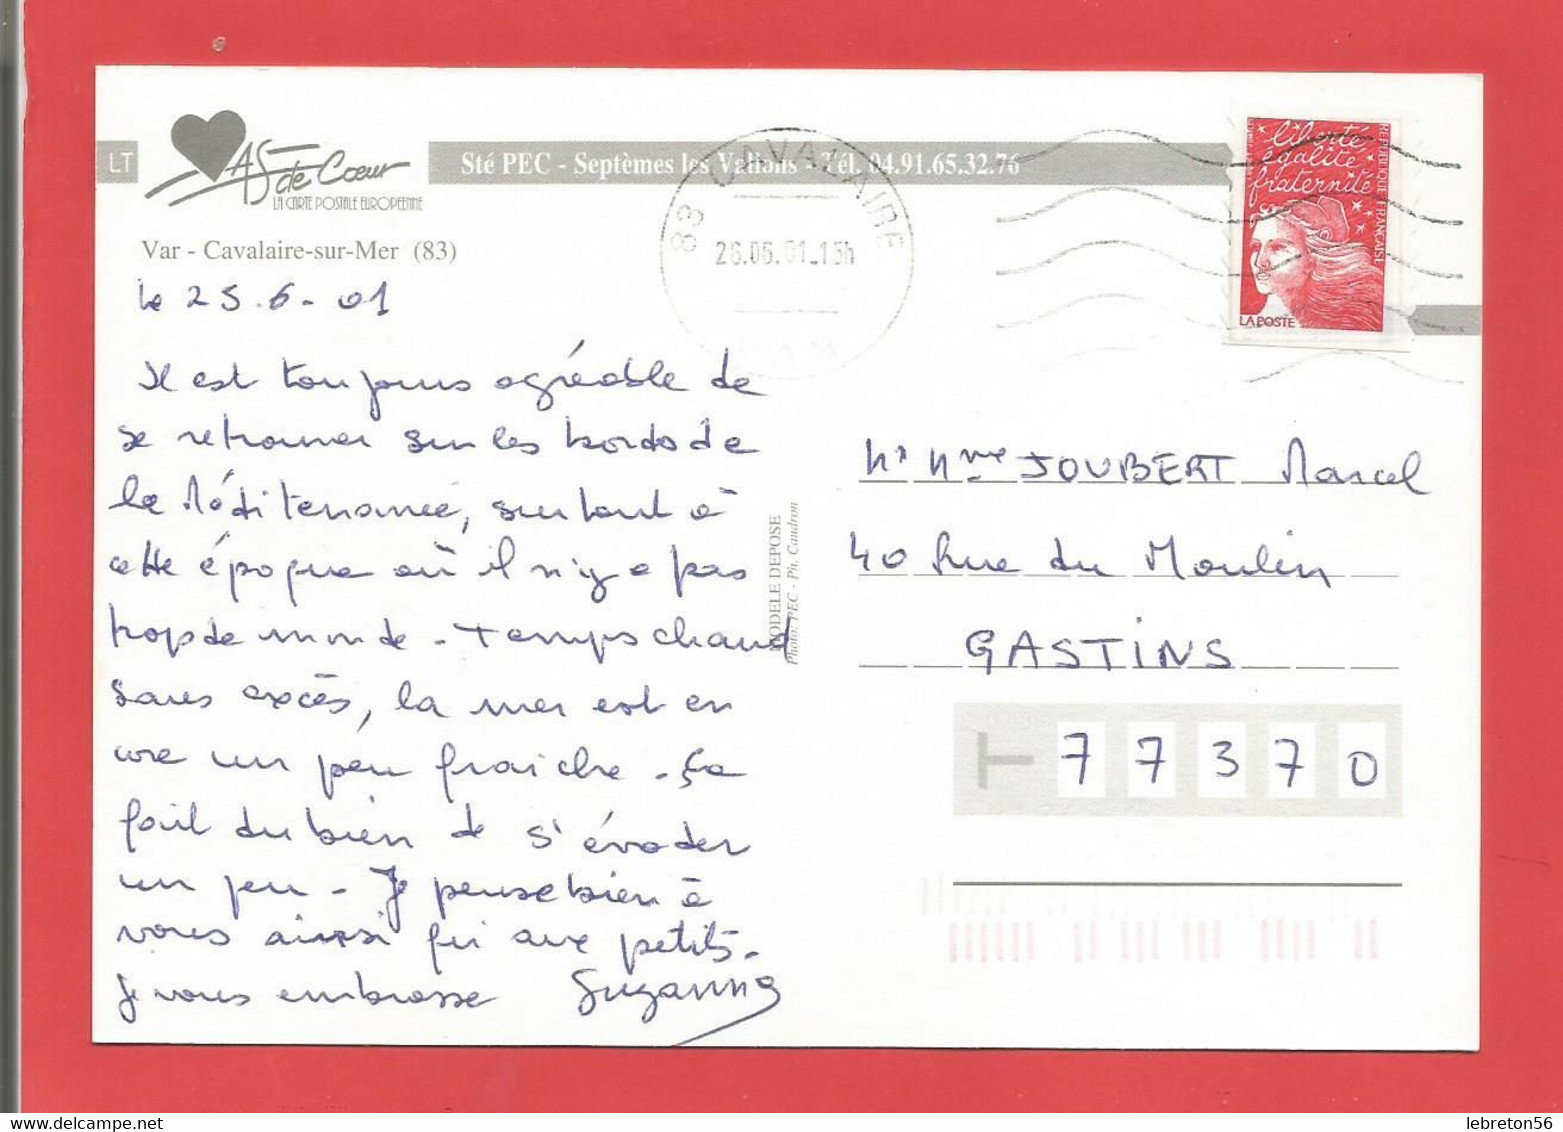 LT
AS de Cœur
LA CARTE POSTALE EUROPEENNE
Sté PEC - Septèmes les Vallons - Tél. 04.91.65.32.76
Var - Cavalaire-sur-Mer (83)
83 CAVALAIRE
26.06.01_15h
VAR
liberté
égalité
fraternité
REPUBLIQUE FRANÇAISE
LA POSTE
le 25.6-01
Il est toujours agréable de
se retrouver sur les bords de
la Méditerranée, surtout à
cette époque où il n'y a pas
trop de monde - temps chaud
sans excès, la mer est en
core un peu fraiche - ça
fait du bien de s'évader
un peu - Je pense bien à
vous ainsi qu'aux petits -
Je vous embrasse Suzanne
MODELE DEPOSE
Photo: PEC - Ph. Caudron
Mr Mme JOUBERT Marcel
40 Rue du Moulin
GASTINS
77370
lebreton56